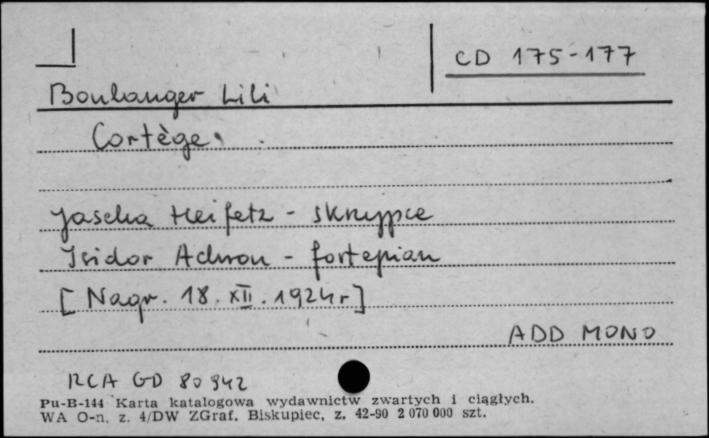 CD 175-177
Boulanger Lili
Cortège.
Jascha Heifetz - skrzypce
Isidor Achron - fortepian
[Nagr. 18. XII. 1924 r]
ADD MONO
RCA GD 80942
Pu-B-144 Karta katalogowa wydawnictw zwartych i ciągłych.
WA O-n. z. 4/DW ZGraf. Biskupiec, z. 42-90 2 070 000 szt.